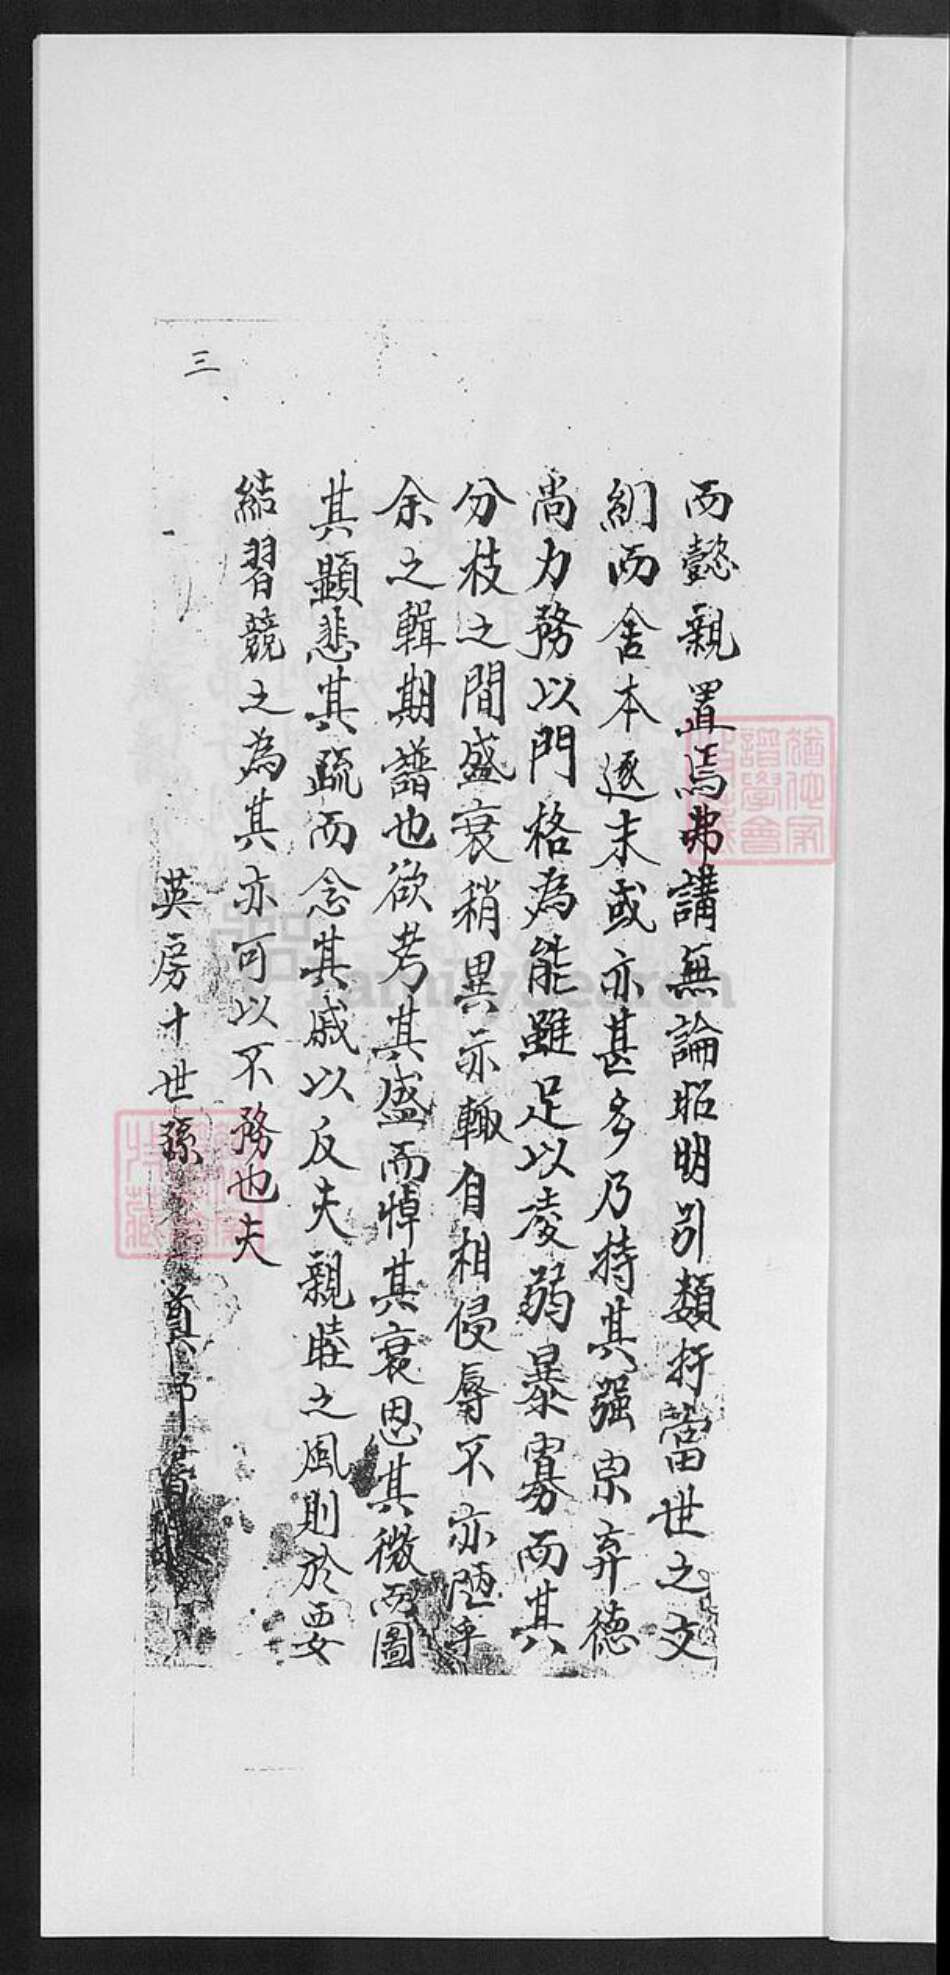 而懿親置焉弗講無論昭明引類扞當世之文
網而舍本逐末或亦甚多乃持其强宗弃德
尚力務以門格為能雖足以凌弱暴寡而其
分枝之間盛衰稍異亦輙自相侵辱不亦陋乎
余之輯期譜也欲考其盛而悼其衰思其微而圖
其顯悲其疏而念其戚以反夫親睦之風則於要
結習競之為其亦可以不務也夫
英房十世孫
三
FamilySearch